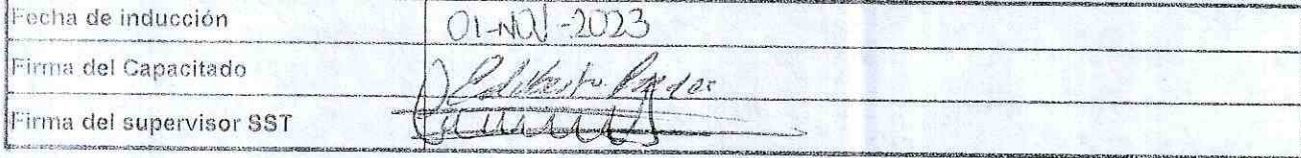 Fecha de inducción 01-NOV-2023
Firma del Capacitado
Firma del supervisor SST